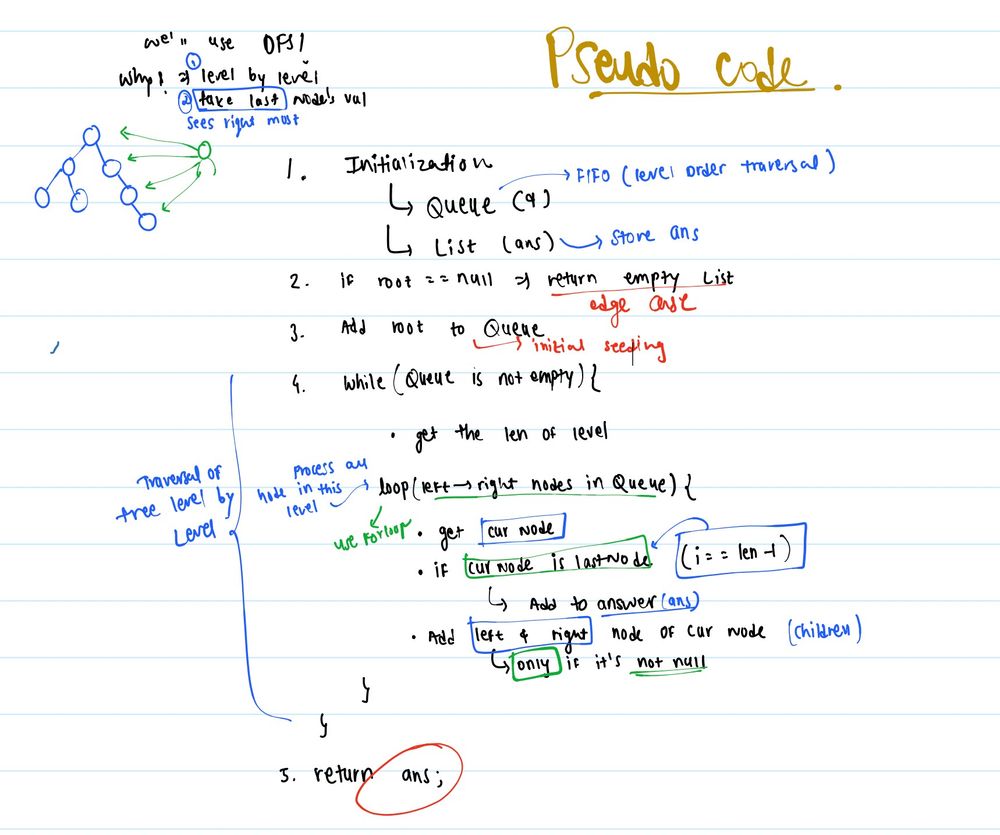 we'll use DFS!
Pseudo code.
why? ⇒ ① level by level
② take last node's val
sees right most
1. Initialization
↳ Queue (q) → FIFO (level order traversal)
↳ List (ans) → Store ans
2. if root == null ⇒ return empty List
edge case
3. Add root to Queue
→ initial seeding
4. while (Queue is not empty) {
• get the len of level
Traversal of tree level by level
Process all node in this level
loop (left → right nodes in Queue) {
use for loop
• get cur node
• if cur node is last node (i == len -1)
↳ Add to answer (ans)
• Add left & right node of cur node (children)
↳ only if it's not null
}
}
5. return ans;